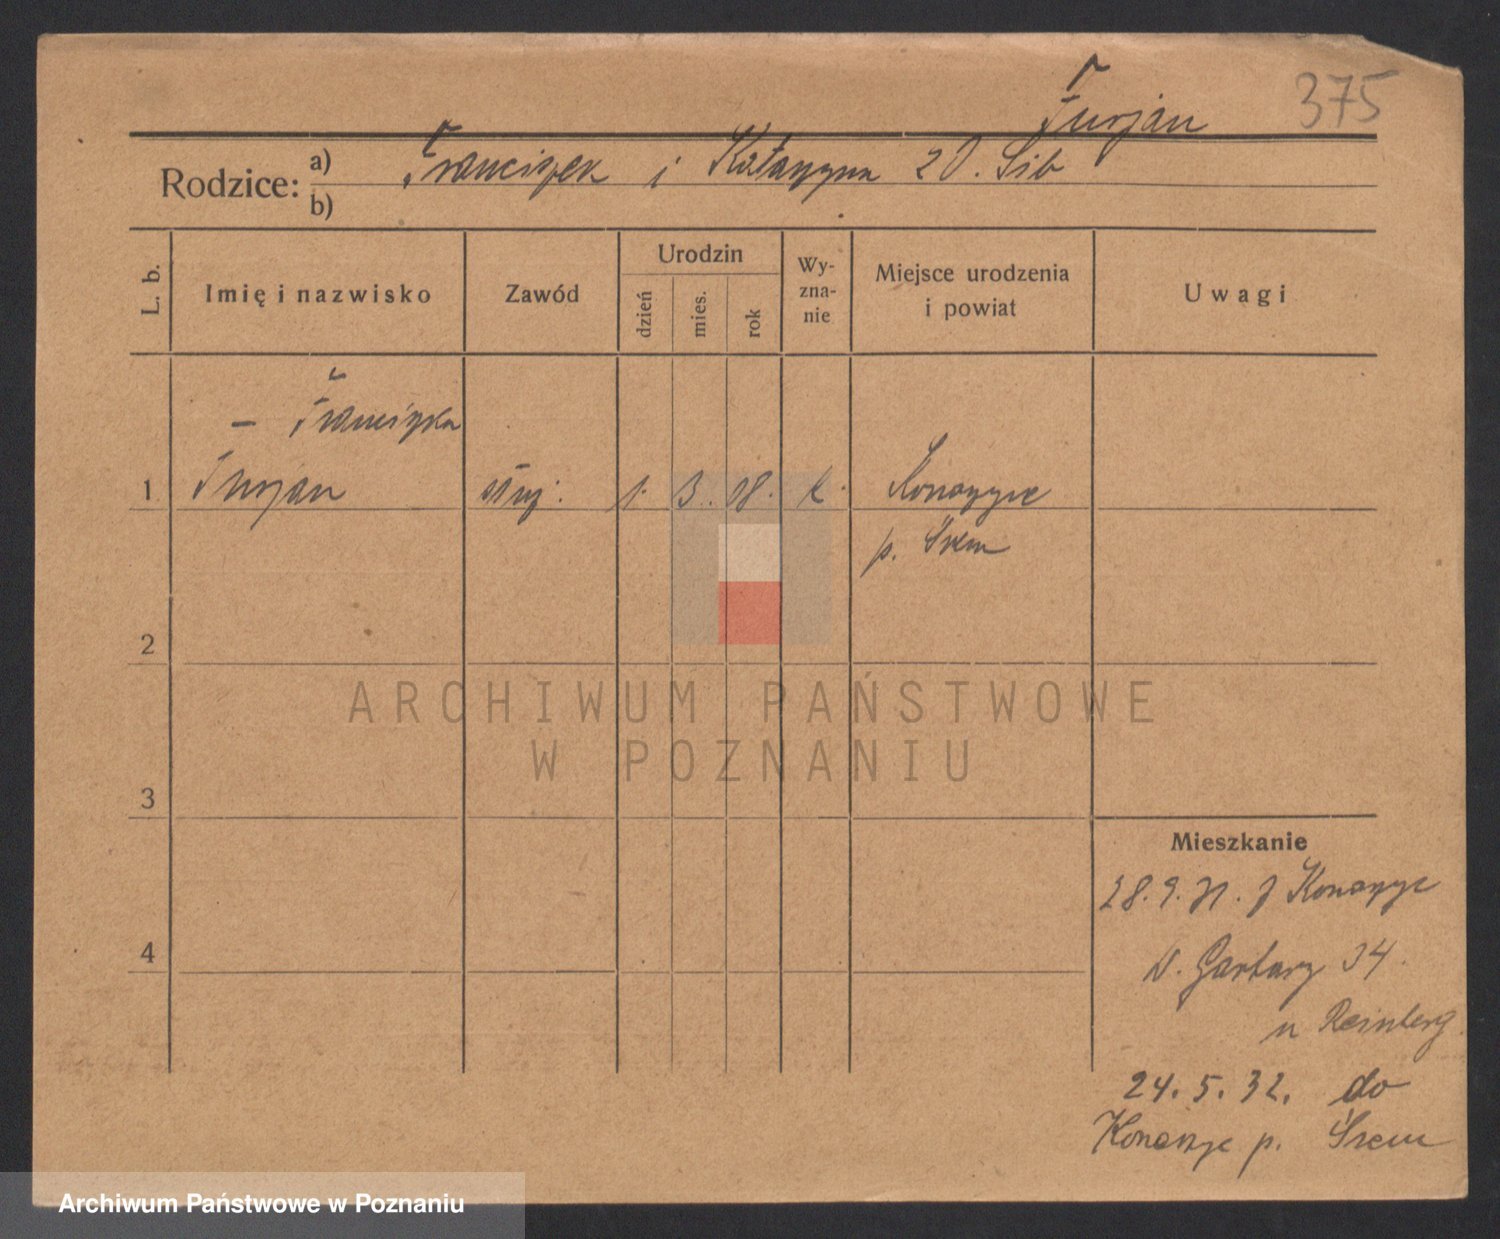 Furjan 375
Rodzice: a) Franciszek i Katarzyna z D. Sib
b)
L. b. Imię i nazwisko Zawód Urodzin dzień mies. rok Wyznanie Miejsce urodzenia i powiat Uwagi
– Franciszka
1 Furjan służ. 1. 3. 08. k. Konarzyce
p. Śrem
2
ARCHIWUM PAŃSTWOWE
W POZNANIU
3
Mieszkanie
28.9.31. z Konarzyc
4
D. Garbary 34.
u Reinberg.
24.5.32. do
Konarzyc p. Śrem
Archiwum Państwowe w Poznaniu